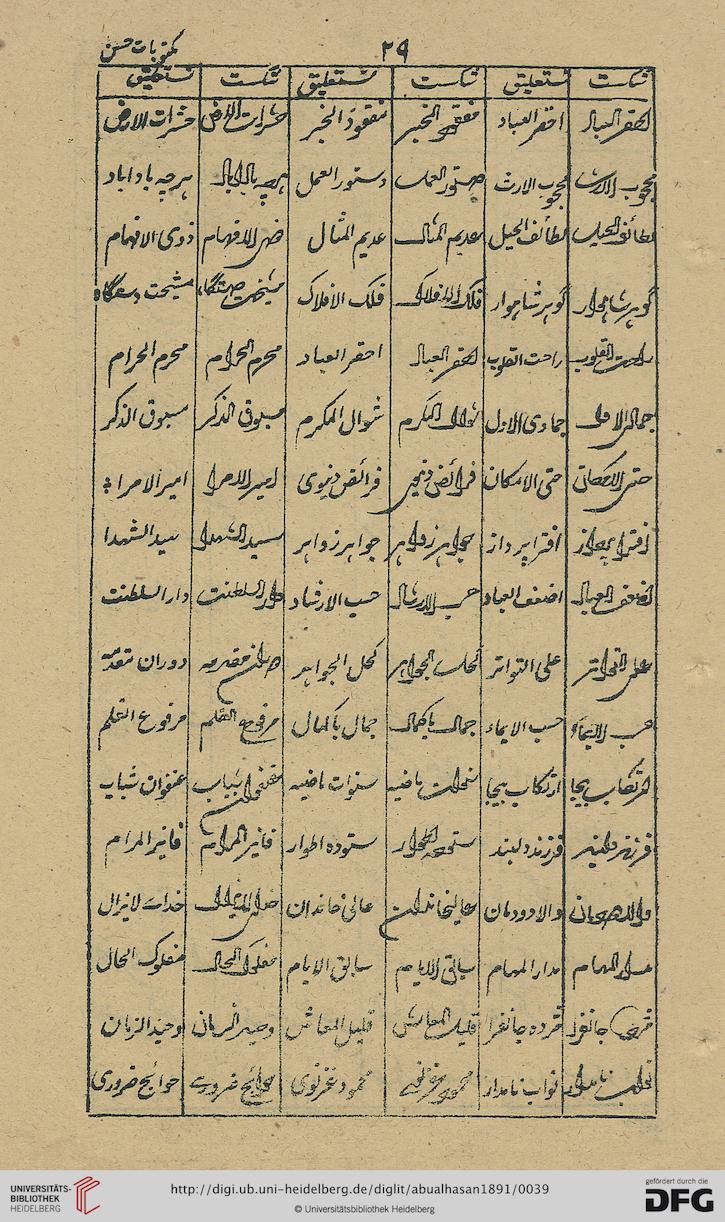 ۲۹
مکتوبات حسن
شکست نستعلیق شکست نستعلیق شکست نستعلیق
احقر العباد احقر العباد مفقود الخبر مفقود الخبر حشرات الارض حشرات الارض
محجوب الارث محجوب الارث دستور العمل دستور العمل هرچه باداباد هرچه باداباد
لطائف الحیل لطائف الحیل عدیم المثال عدیم المثال ذوی الافهام ذوی الافهام
گوهر شاهوار گوهر شاهوار فلک الافلاک فلک الافلاک مشیخت دستگاه مشیخت دستگاه
راحت القلوب راحت القلوب احقر العباد احقر العباد محرم الحرام محرم الحرام
جمادی الاول جمادی الاول شوال المکرم شوال المکرم مسبوق الذکر مسبوق الذکر
حتی الامکان حتی الامکان فرائض دنیوی فرائض دنیوی امیر الامرا امیر الامرا
افترا پرداز افترا پرداز جواهر زواهر جواهر زواهر سید الشهدا سید الشهدا
اضعف العباد اضعف العباد حسب الارشاد حسب الارشاد دار السلطنت دار السلطنت
علی التواتر علی التواتر کحل الجواهر کحل الجواهر
حسب الایماء حسب الایماء جمال باکمال جمال باکمال مرفوع القلم مرفوع القلم
ارتکاب بیجا ارتکاب بیجا سنوات ماضیه سنوات ماضیه عنفوان شباب عنفوان شباب
فرزند دلبند فرزند دلبند ستوده اطوار ستوده اطوار فائز المرام فائز المرام
والادودمان والادودمان عالیخاندان عالی خاندان خدای لایزال خدای لایزال
مدار المهام مدار المهام سابق الایام سابق الایام مفلوک الحال مفلوک الحال
مژده جانفزا مژده جانفزا قلیل المعاش قلیل المعاش وحید الزمان وحید الزمان
نواب نامدار نواب نامدار محمود غزنوی محمود غزنوی حوائج ضروری حوائج ضروری
UNIVERSITÄTS-
BIBLIOTHEK
HEIDELBERG
http://digi.ub.uni-heidelberg.de/diglit/abualhasan1891/0039
© Universitätsbibliothek Heidelberg
gefördert durch die
DFG